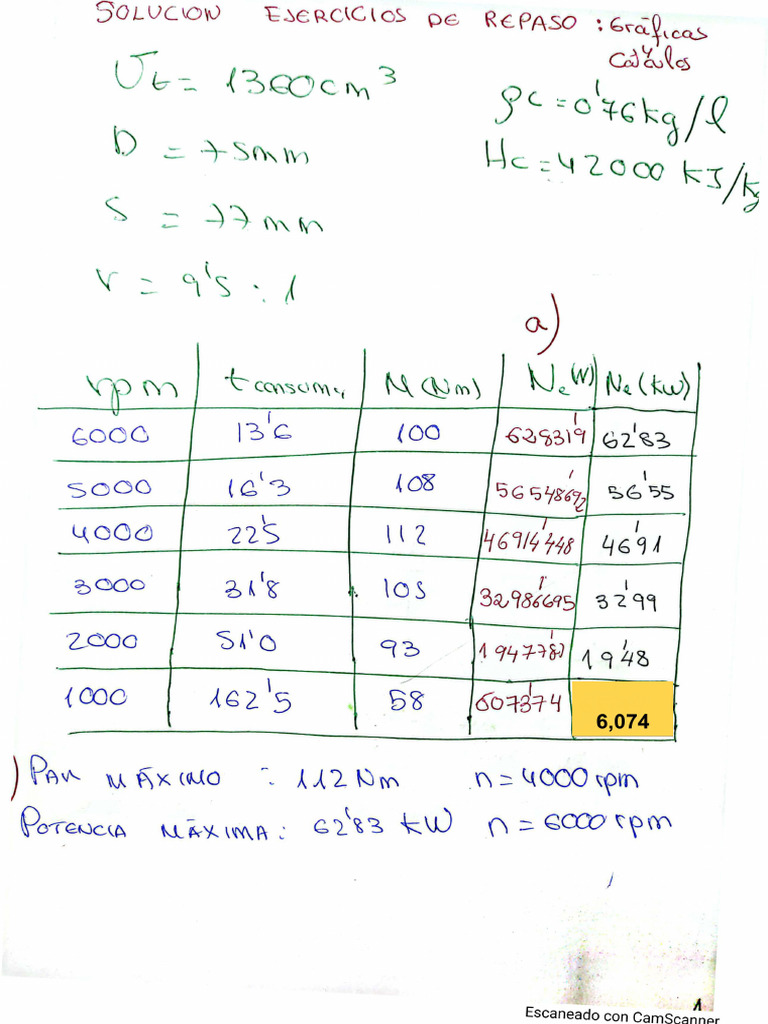 SOLUCION EJERCICIOS DE REPASO: Gráficas
y
Cálculos
Vt = 1360 cm³
ρc = 0'76 kg/l
D = 75mm
Hc = 42000 kJ/kg
S = 77mm
r = 9'5 : 1
a)
rpm t consumo M (Nm) Ne (W) Ne (kW)
6000 13'6 100 62831'9 62'83
5000 16'3 108 56548'692 56'55
4000 22'5 112 46914'448 46'91
3000 31'8 105 32986'695 32'99
2000 51'0 93 19477'87 19'48
1000 162'5 58 6073'74 6,074
) PAR MÁXIMO : 112 Nm n = 4000 rpm
POTENCIA MÁXIMA: 62'83 kW n = 6000 rpm
1
Escaneado con CamScanner